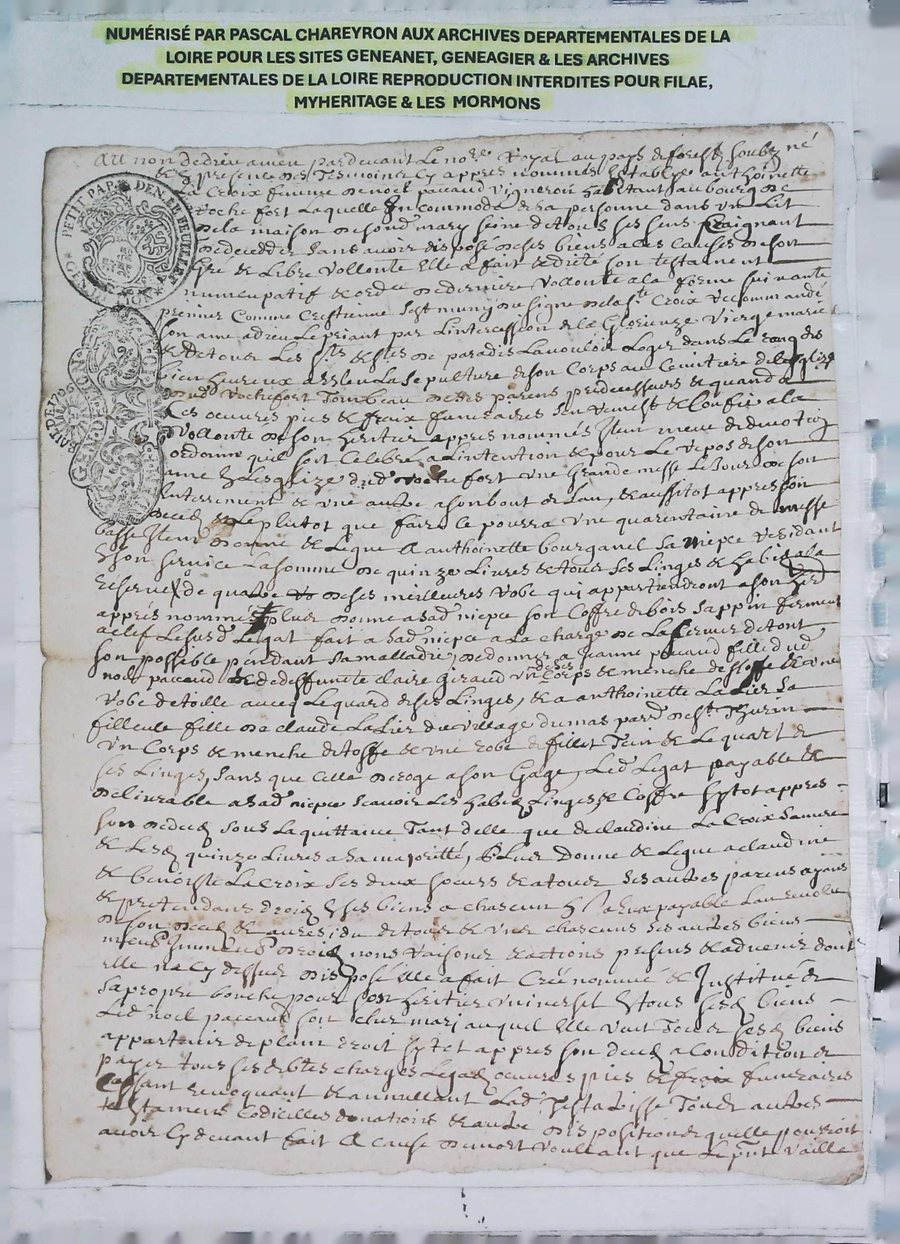 NUMÉRISÉ PAR PASCAL CHAREYRON AUX ARCHIVES DEPARTEMENTALES DE LA
LOIRE POUR LES SITES GENEANET, GENEAGIER & LES ARCHIVES
DEPARTEMENTALES DE LA LOIRE REPRODUCTION INTERDITES POUR FILAE,
MYHERITAGE & LES MORMONS
Au non de dieu amen pardevant le nore Royal au pays de forest soubzné
& presence des Tesmoins cy appres nommés Establye anthoinette
La Croix femme de noel paccaud Vigneron habitant au bourg de
Roche fort Laquelle Incommodé de sa personne dans un Lit
de la maison de sond mary seine de tous ses sens Craignant
de decedder sans avoir disposé de ses biens a les causes de son
gre & Libre vollonté Elle a fait & dicté son testament
nuncupatif & ordce de derniere vollonté a la forme suivante
premier Comme Crestienne s'est muny du signe de la ste Croix Recommandé
son ame a dieu Le priant par L'intercession de la Glorieuze Vierge marie
& de tous Les sts & stes de paradis La vouloir Loger dans Le rang des
bien heureux a esleu La sepulture de son Corps au Cimitiere de l'esglize
dud Rochefort Tombeau de ses parens predecesseurs & quand a
ses oeuvres pies & fraix funeraires s'en remest & Confie a la
Vollonté de son heritier appres nommés Item meue de devotion
ordonne quil soit Celebré a La intention & pour Le repos de son
ame En Lesglize dud Rochefort une Grande messe Le Jour de son
Enterrement & une autre a son bout de L'an, & aussitot appres son
deced & Le plutot que faire ce pourra une quarentaine de messe
basse Item donne & Legue A anthoinette bourganel sa niepce residant
a son service La somme de quinze Livres & tous ses Linges & habits a la
reserve de quatre de ses meilleures robe qui appartiendront a son herd
appres nommé plus donne a sad niepce son Coffre de bois sappin fermant
a clef Le susd Legat fait a sad niepce a La charge de La servir de tout
son possible pendant sa malladie, de donner a Jeanne paccaud fille dud
noel paccaud & de deffuncte claire Giraud un de ses Corps & menche d'estoffe & une
robe de toille avec Le quard de ses Linges, & a anthoinette La Lier sa
filleule fille de claude La Lier du village du mas parr de st Thurin
un Corps & menche d'estoffe & une robe de fillet Tein & Le quart de
ses Linges, sans que Celle deroge a son Gage, Led Legat payable &
delivrable a sad niepce scavoir Les habits Linges & Coffre sytot appres
son deced sous La quittance Tant d'elle que de claudine La Croix sa mere
& Lesd quinze Livres a sa majoritté, Plus donne & Legue a claudine
& benoiste La Croix ses deux soeurs & a tous ses autres parens ayans
& pretendans droit En ses biens a chascun payable L'an revolu
de son deced & au residu de tous & uns chascuns ses autres biens
meubs Immeubs droicts noms raisons & actions presens & advenir dont
elle na cy dessus disposé elle a fait Créé nommé & Institué de
sa propre bouche pour son heritier universel En tous sesd biens
Led noel paccaud son cher mari auquel Elle veut Tous sesd biens
appartenir de plain droit sytot appres son deced a condition de
payer tous ses debtes charges Legats oeuvres pies & fraix funeraires
Cassant revoquant & annullant Lad Testatrisse Tous autres
testamens Codicilles donations & autre dispositions quelle pourroit
avoir cy devant fait A cause de mort voullant que Le pnt vaille